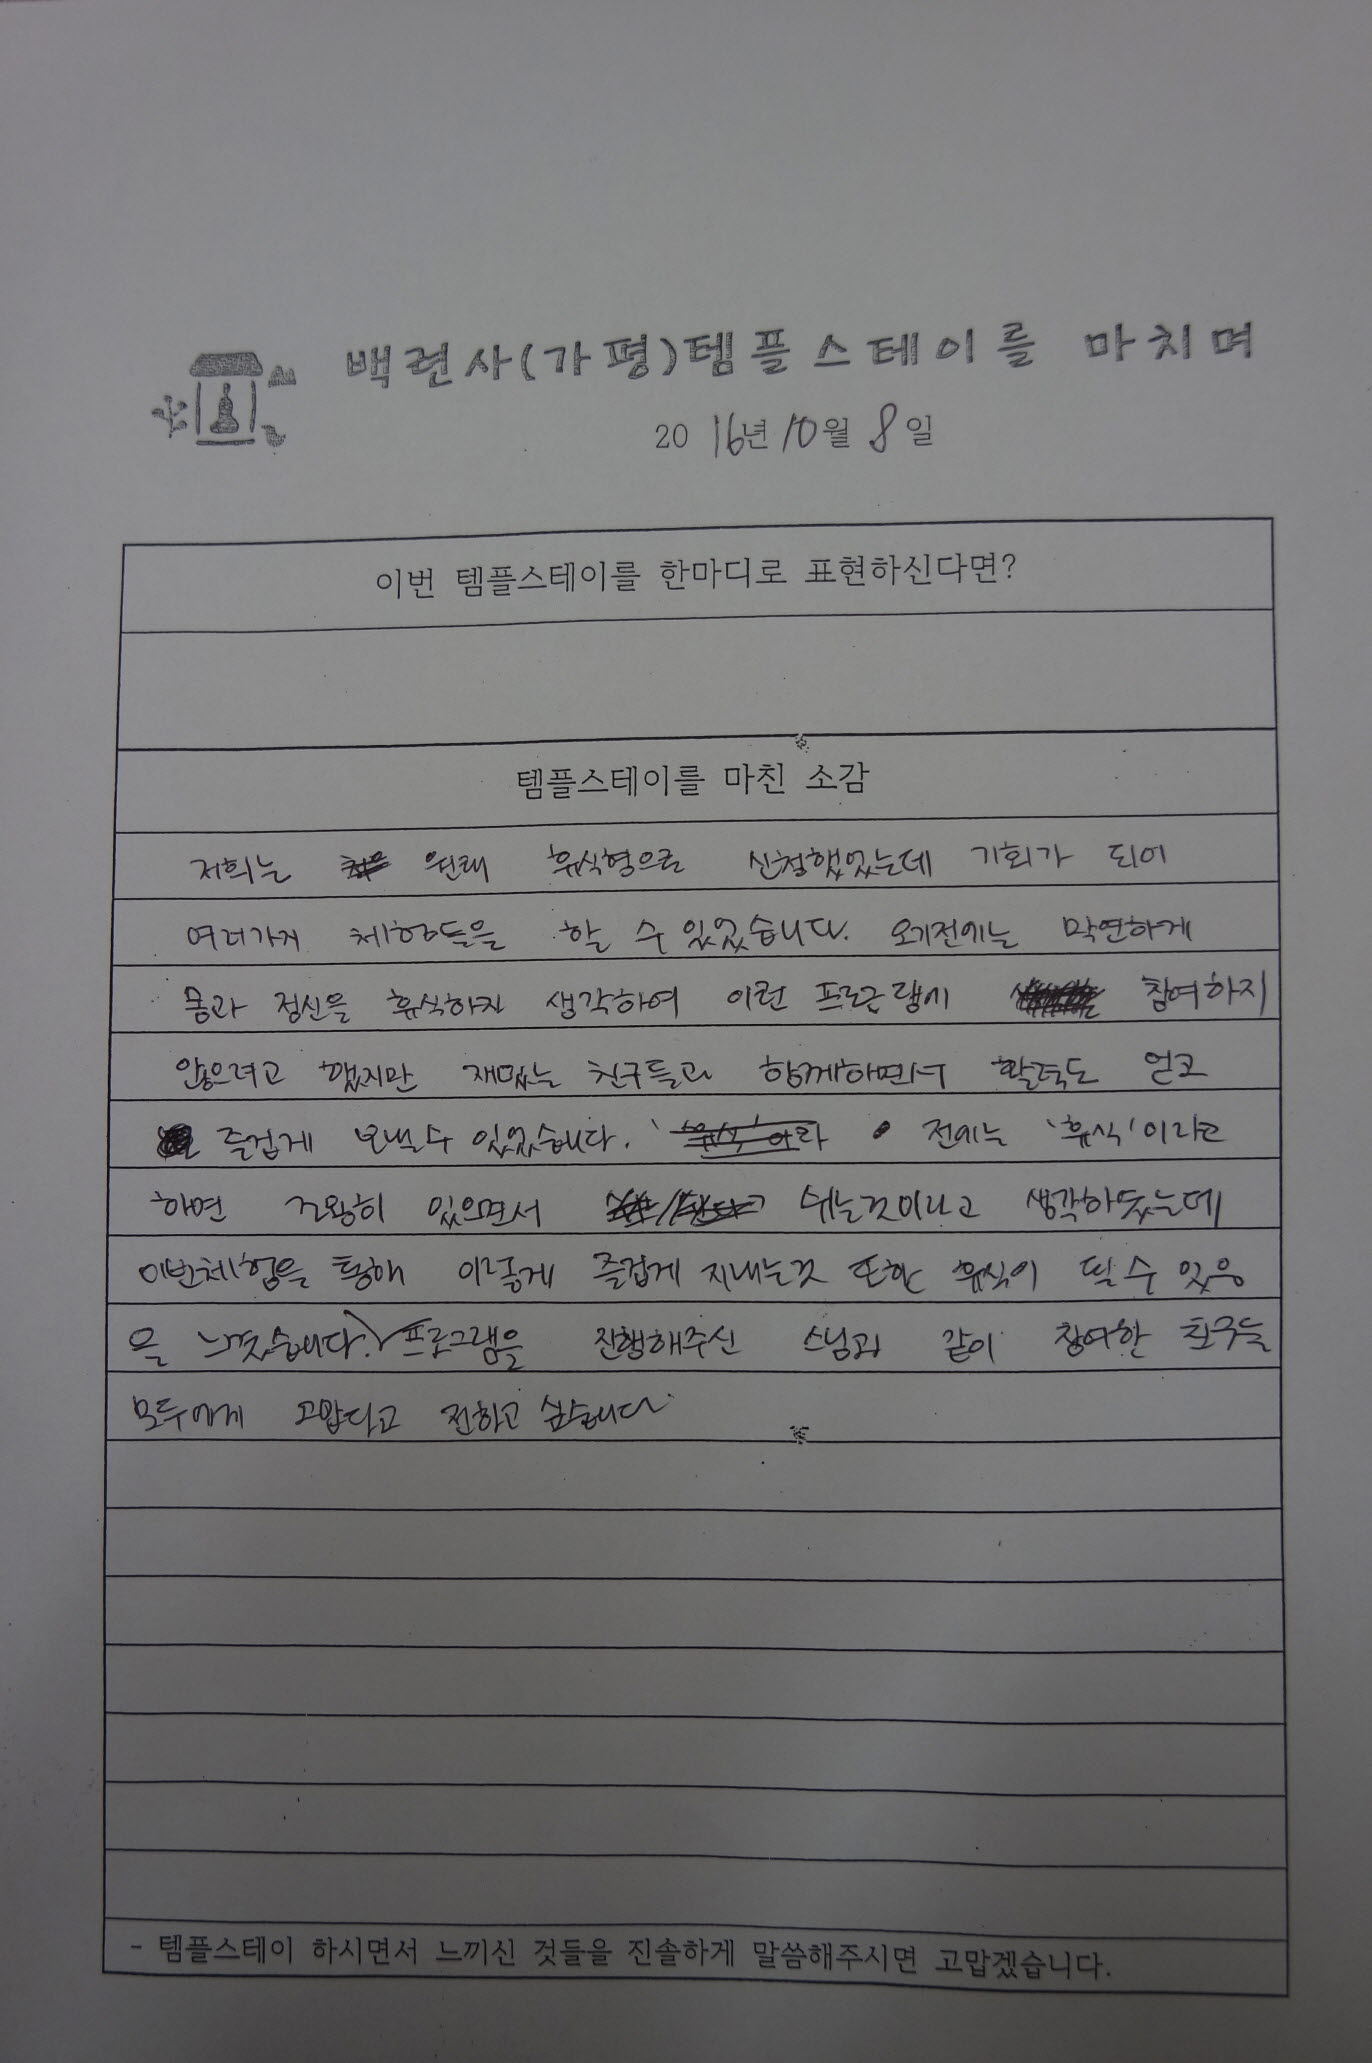 백련사(가평)템플스테이를 마치며
2016년 10월 8일
이번 템플스테이를 한마디로 표현하신다면?
템플스테이를 마친 소감
저희는 원래 휴식형으로 신청했었는데 기회가 되어
여러가지 체험들을 할 수 있었습니다. 오기전에는 막연하게
몸과 정신을 휴식하자 생각하여 이런 프로그램에 참여하지
않으려고 했지만 재밌는 친구들과 함께하면서 활력도 얻고
즐겁게 보낼수 있었습니다. 전에는 '휴식'이라고
하면 조용히 있으면서 쉬는것이라고 생각하였는데
이번체험을 통해 이렇게 즐겁게 지내는것 또한 휴식이 될 수 있음
을 느꼈습니다. 프로그램을 진행해주신 스님과 같이 참여한 친구들
모두에게 고맙다고 전하고 싶습니다
- 템플스테이 하시면서 느끼신 것들을 진솔하게 말씀해주시면 고맙겠습니다.